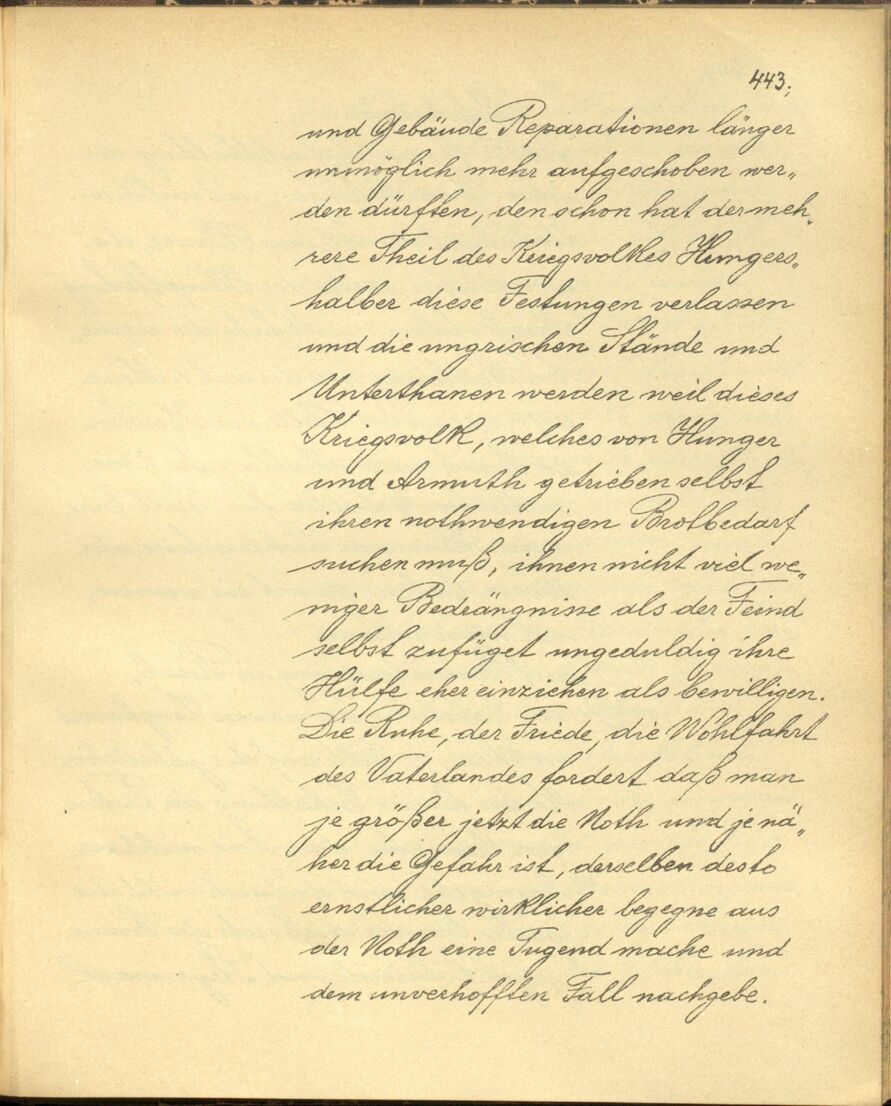 443.
und Gebäude Reparationen länger
unmöglich mehr aufgeschoben wer„
den dürften, den schon hat der meh„
rere Theil des Kriegsvolkes Hungers„
halber diese Festungen verlassen
und die ungrischen Stände und
Unterthanen werden weil dieses
Kriegsvolk, welches von Hunger
und Armuth getrieben selbst
ihren nothwendigen Brotbedarf
suchen muß, ihnen nicht viel we„
niger Bedrängnisse als der Feind
selbst zufüget ungeduldig ihre
Hülfe eher einziehen als bewilligen.
Die Ruhe, der Friede, die Wohlfahrt
des Vaterlandes fordert daß man
je größer jetzt die Noth und je nä„
her die Gefahr ist, derselben desto
ernstlicher wirklicher begegne aus
der Noth eine Tugend mache und
dem unverhofften Fall nachgebe.